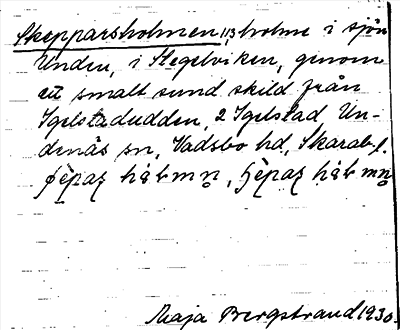 Skepparsholmen, 1/3 holme i sjön
Unden, i Stegelviken, genom
ett smalt sund skild från
Igelstadudden, 2 Igelstad Un-
denäs sn, Vadsbo hd, Skarab. l.
Maja Bergstrand 1930.